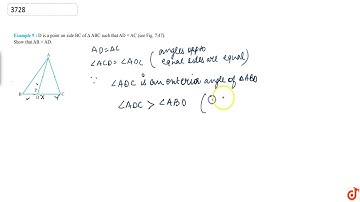 3728
Example 9 : D is a point on side BC of Δ ABC such that AD = AC (see Fig. 7.47).
Show that AB > AD.
AD=AC
∠ACD=∠ADC (angles oppo to
equal sides are equal)
∵ ∠ADC is an exterior angle of ΔABD
∠ADC > ∠ABD (
A
B D C